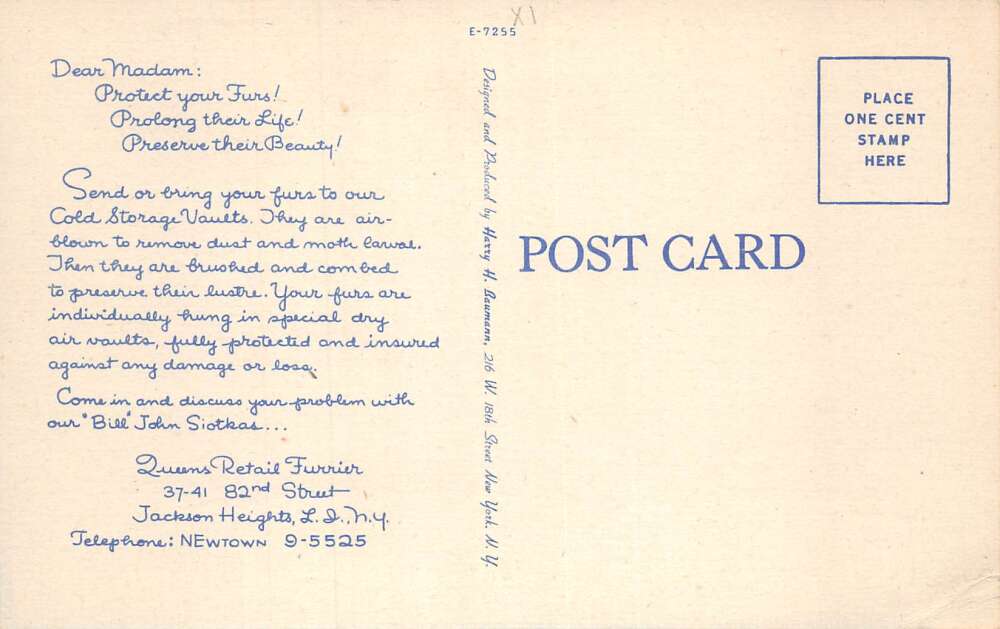 XI
E-7255
Dear Madam:
Protect your Furs!
Prolong their Life!
Preserve their Beauty!
Send or bring your furs to our
Cold Storage Vaults. They are air-
blown to remove dust and moth larvae.
Then they are brushed and combed
to preserve their lustre. Your furs are
individually hung in special dry
air vaults, fully protected and insured
against any damage or loss.
Come in and discuss your problem with
our "Bill" John Siotkas...
Queens Retail Furrier
37-41 82nd Street
Jackson Heights, L. I., N.Y.
Telephone: NEWTOWN 9-5525
Designed and Produced by Harry H. Baumann, 216 W. 18th Street New York, N. Y.
POST CARD
PLACE
ONE CENT
STAMP
HERE